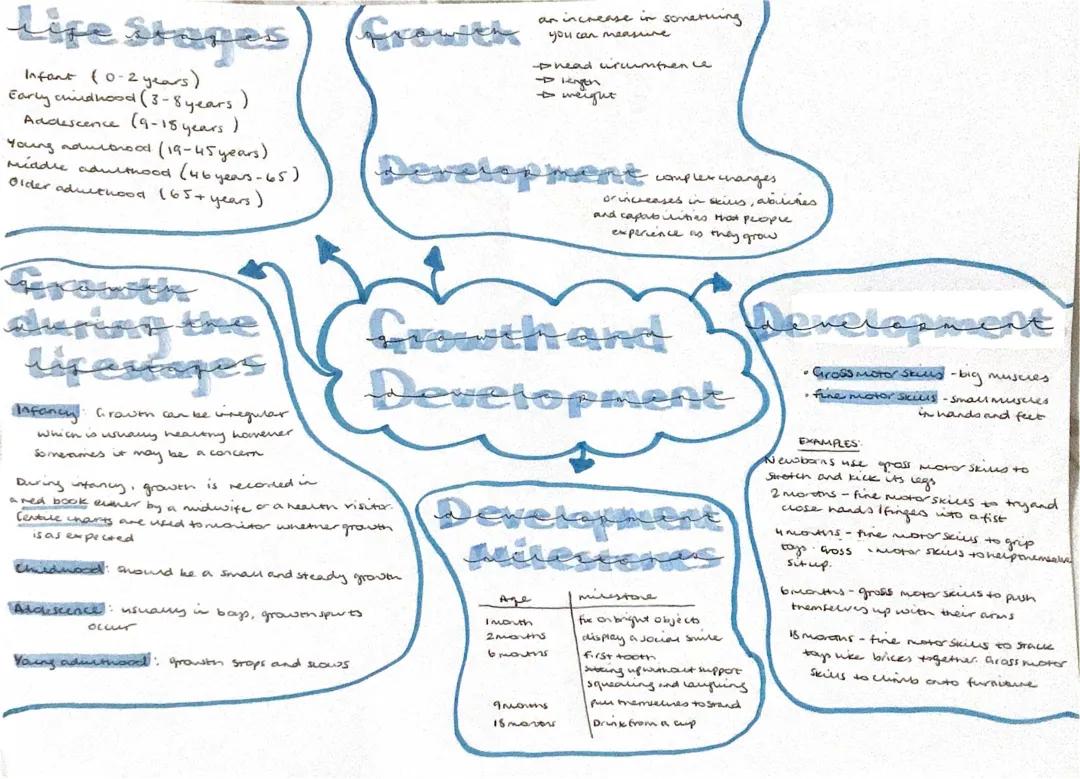 Life Stages
Infant (0-2 years)
Early childhood (3-8 years)
Adolescence (9-18 years)
Young adulthood (19-45 years)
Middle adulthood (46 years-65)
Older adulthood (65+ years)
Growth
an increase in something
you can measure
→ head circumfrence
→ length
→ weight
Development
complex changes
or increases in skills, abilities
and capabilities that people
experience as they grow
Growth and
Development
Growth
during the
lifestages
Infancy: Growth can be irregular
which is usually healthy however
sometimes it may be a concern
During infancy, growth is recorded in
a red book either by a midwife or a health visitor.
Centile charts are used to monitor whether growth
is as expected
Childhood: Should be a small and steady growth
Adolescence: usually in boys, growth spurts
occur
Young adulthood: growth stops and slows
Development
Milestones
Age milestone
1 month fix on bright objects
2 months display a social smile
6 months first tooth
sitting up without support
squealing and laughing
9 months pull themselves to stand
18 months Drink from a cup
Development
• Gross motor skills - big muscles
• fine motor skills - small muscles
in hands and feet
EXAMPLES:
Newborns use gross motor skills to
stretch and kick its legs
2 months - fine motor skills to try and
close hands/fingers into a fist
4 months - fine motor skills to grip
toys. Gross motor skills to help themselves
sit up.
6 months - gross motor skills to push
themselves up with their arms
18 months - fine motor skills to stack
toys like bricks together. Gross motor
skills to climb onto furniture